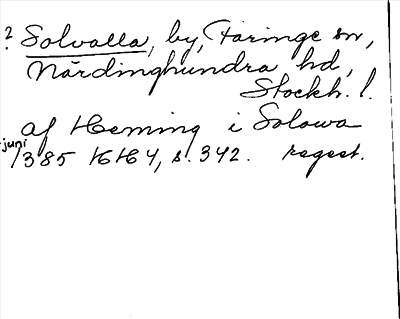 ? Solvalla, by, Faringe sn,
Närdinghundra hd,
Stockh. l.
af Heming i Solowa
juni
1385 HH 4, s. 342. regest.